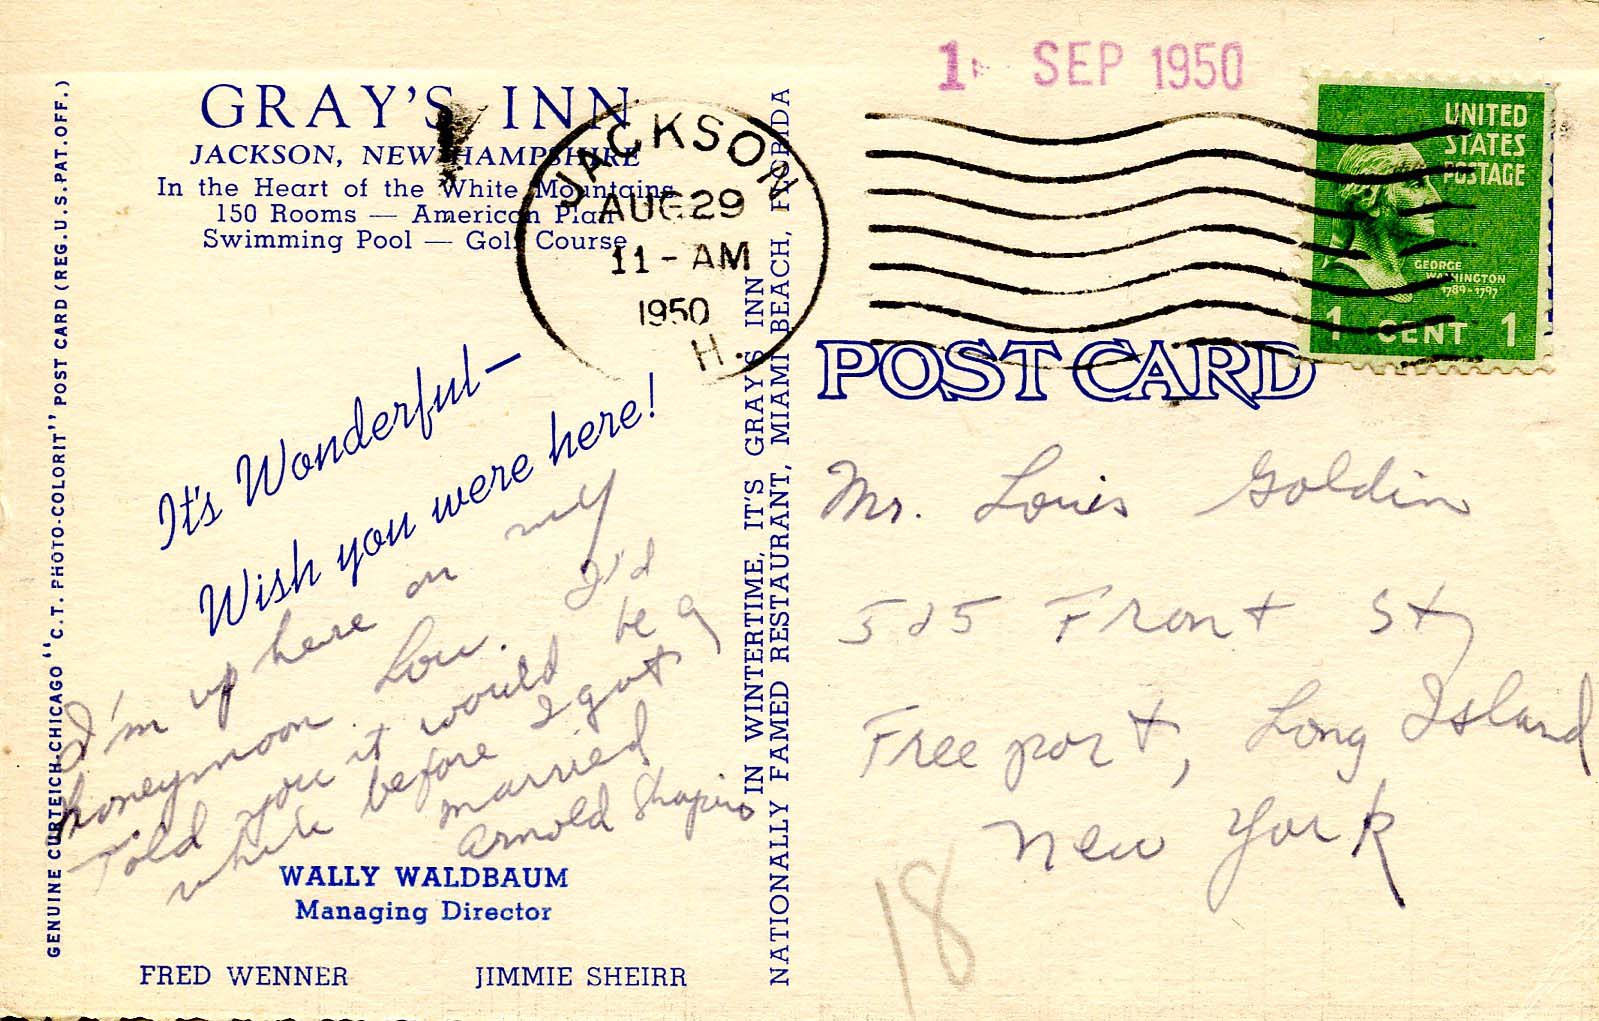 GRAY'S INN
JACKSON, NEW HAMPSHIRE
In the Heart of the White Mountains
150 Rooms — American Plan
Swimming Pool — Golf Course
It's Wonderful—
Wish you were here!
I'm up here on my
honeymoon. Lou. I'd
Told you it would be a
while before I got
married
Arnold Shapiro
WALLY WALDBAUM
Managing Director
FRED WENNER JIMMIE SHEIRR
GENUINE CURTEICH-CHICAGO "C.T. PHOTO-COLORIT" POST CARD (REG. U.S. PAT. OFF.)
IN WINTERTIME, IT'S GRAY'S INN
NATIONALLY FAMED RESTAURANT, MIAMI BEACH, FLORIDA
JACKSON
AUG 29
11-AM
1950
H.
1 SEP 1950
UNITED
STATES
POSTAGE
GEORGE
WASHINGTON
1789-1797
1 CENT 1
POST CARD
Mr. Louis Goldin
525 Front St
Freeport, Long Island
New York
18